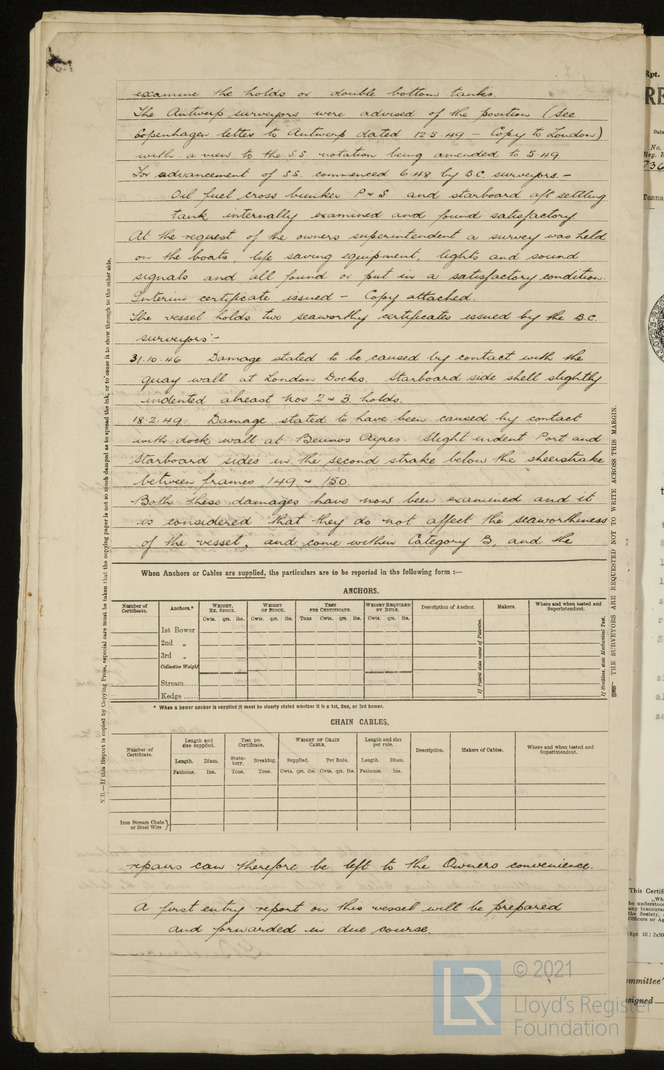 examine the holds or double bottom tanks.
The Antwerp surveyors were advised of the position (See
Copenhagen letter to Antwerp dated 12.5.49 - Copy to London)
with a view to the S.S. notation being amended to 5.49
For advancement of S.S. commenced 6.48 by B.C. surveyors. -
Oil fuel cross bunker P & S and starboard aft settling
tank internally examined and found satisfactory
At the request of the owners superintendent a survey was held
on the boats life saving equipment, lights and sound
signals and all found or put in a satisfactory condition.
Interim certificate issued - Copy attached.
The vessel holds two seaworthy certificates issued by the B.C.
surveyors:-
31.10.46 Damage stated to be caused by contact with the
quay wall at London Docks. Starboard side shell slightly
indented abreast Nos 2 & 3 holds.
18.2.49. Damage stated to have been caused by contact
with dock wall at Beunos Ayres. Slight indent Port and
Starboard sides in the second strake below the sheerstrake
between frames 149 & 150
Both these damages have now been examined and it
is considered that they do not affect the seaworthiness
of the vessel, and come within Category B, and the
When Anchors or Cables are supplied, the particulars are to be reported in the following form :—
ANCHORS.
Number of Certificate. Anchors.* Weight, Ex. Stock. Weight of Stock. Test per Certificate. Weight Required by Rule. Description of Anchor. Makers. Where and when tested and Superintendent.
Cwts. qrs. lbs. Cwts. qrs. lbs. Tons Cwts. qrs. lbs. Cwts. qrs. lbs.
1st Bower
2nd „
3rd „
Collective Weight
Stream
Kedge
* When a bower anchor is supplied it must be clearly stated whether it is a 1st, 2nd, or 3rd bower.
CHAIN CABLES.
Number of Certificate. Length and size supplied. Test per Certificate. Weight of Chain Cable. Length and size per rule. Description. Makers of Cables. Where and when tested and Superintendent.
Length. Diam. Statutory. Breaking. Supplied. Per Rule. Length. Diam.
Fathoms. Ins. Tons. Tons. Cwts. qrs. lbs. Cwts. qrs. lbs. Fathoms. Ins.
Iron Stream Chain or Steel Wire
repairs can therefore be left to the Owners convenience.
A first entry report on this vessel will be prepared
and forwarded in due course.
N.B.—If this Report is copied by Copying Press, especial care must be taken that the copying paper is not so much damped as to spread the ink, or to cause it to show through to the other side.
THE SURVEYORS ARE REQUESTED NOT TO WRITE ACROSS THIS MARGIN.
© 2021
LR
Lloyd's Register
Foundation